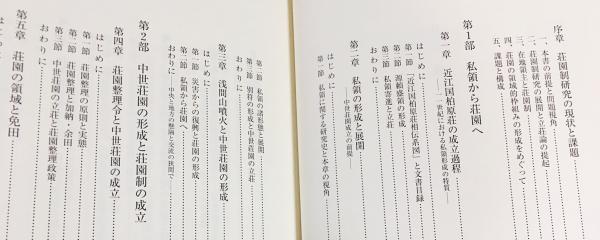 序章　荘園制研究の現状と課題
一、本書の前提と問題視角
二、荘園制研究の展開と立荘論の提起
三、在地領主と荘園制
四、荘園の領域的枠組みの形成をめぐって
五、課題と構成
第1部　私領から荘園へ
第一章　近江国柏原荘の成立過程
──一一世紀における私領形成の特質──
はじめに
第一節　「近江国柏原荘相伝系図」と文書目録
第二節　源頼盛領の形成
第三節　私領寄進と立荘
おわりに
第二章　私領の形成と展開
──中世荘園成立の前提──
はじめに
第一節　私領に関する研究史と本章の視角
第二節　私領の諸形態と展開
第三節　別符の形成と中世荘園の立荘
おわりに
第三章　浅間山噴火と中世荘園の形成
はじめに
第一節　災害からの復興と荘園の形成
第二節　私領から荘園へ
おわりに──中央と地方の懸隔と交流の狭間で──
第2部　中世荘園の形成と荘園制の成立
第四章　荘園整理令と中世荘園の成立
はじめに
第一節　荘園整理の原則と実態
第二節　荘園整理と加納・余田
第三節　中世荘園の立荘と荘園整理政策
おわりに
第五章　荘園の領域と免田